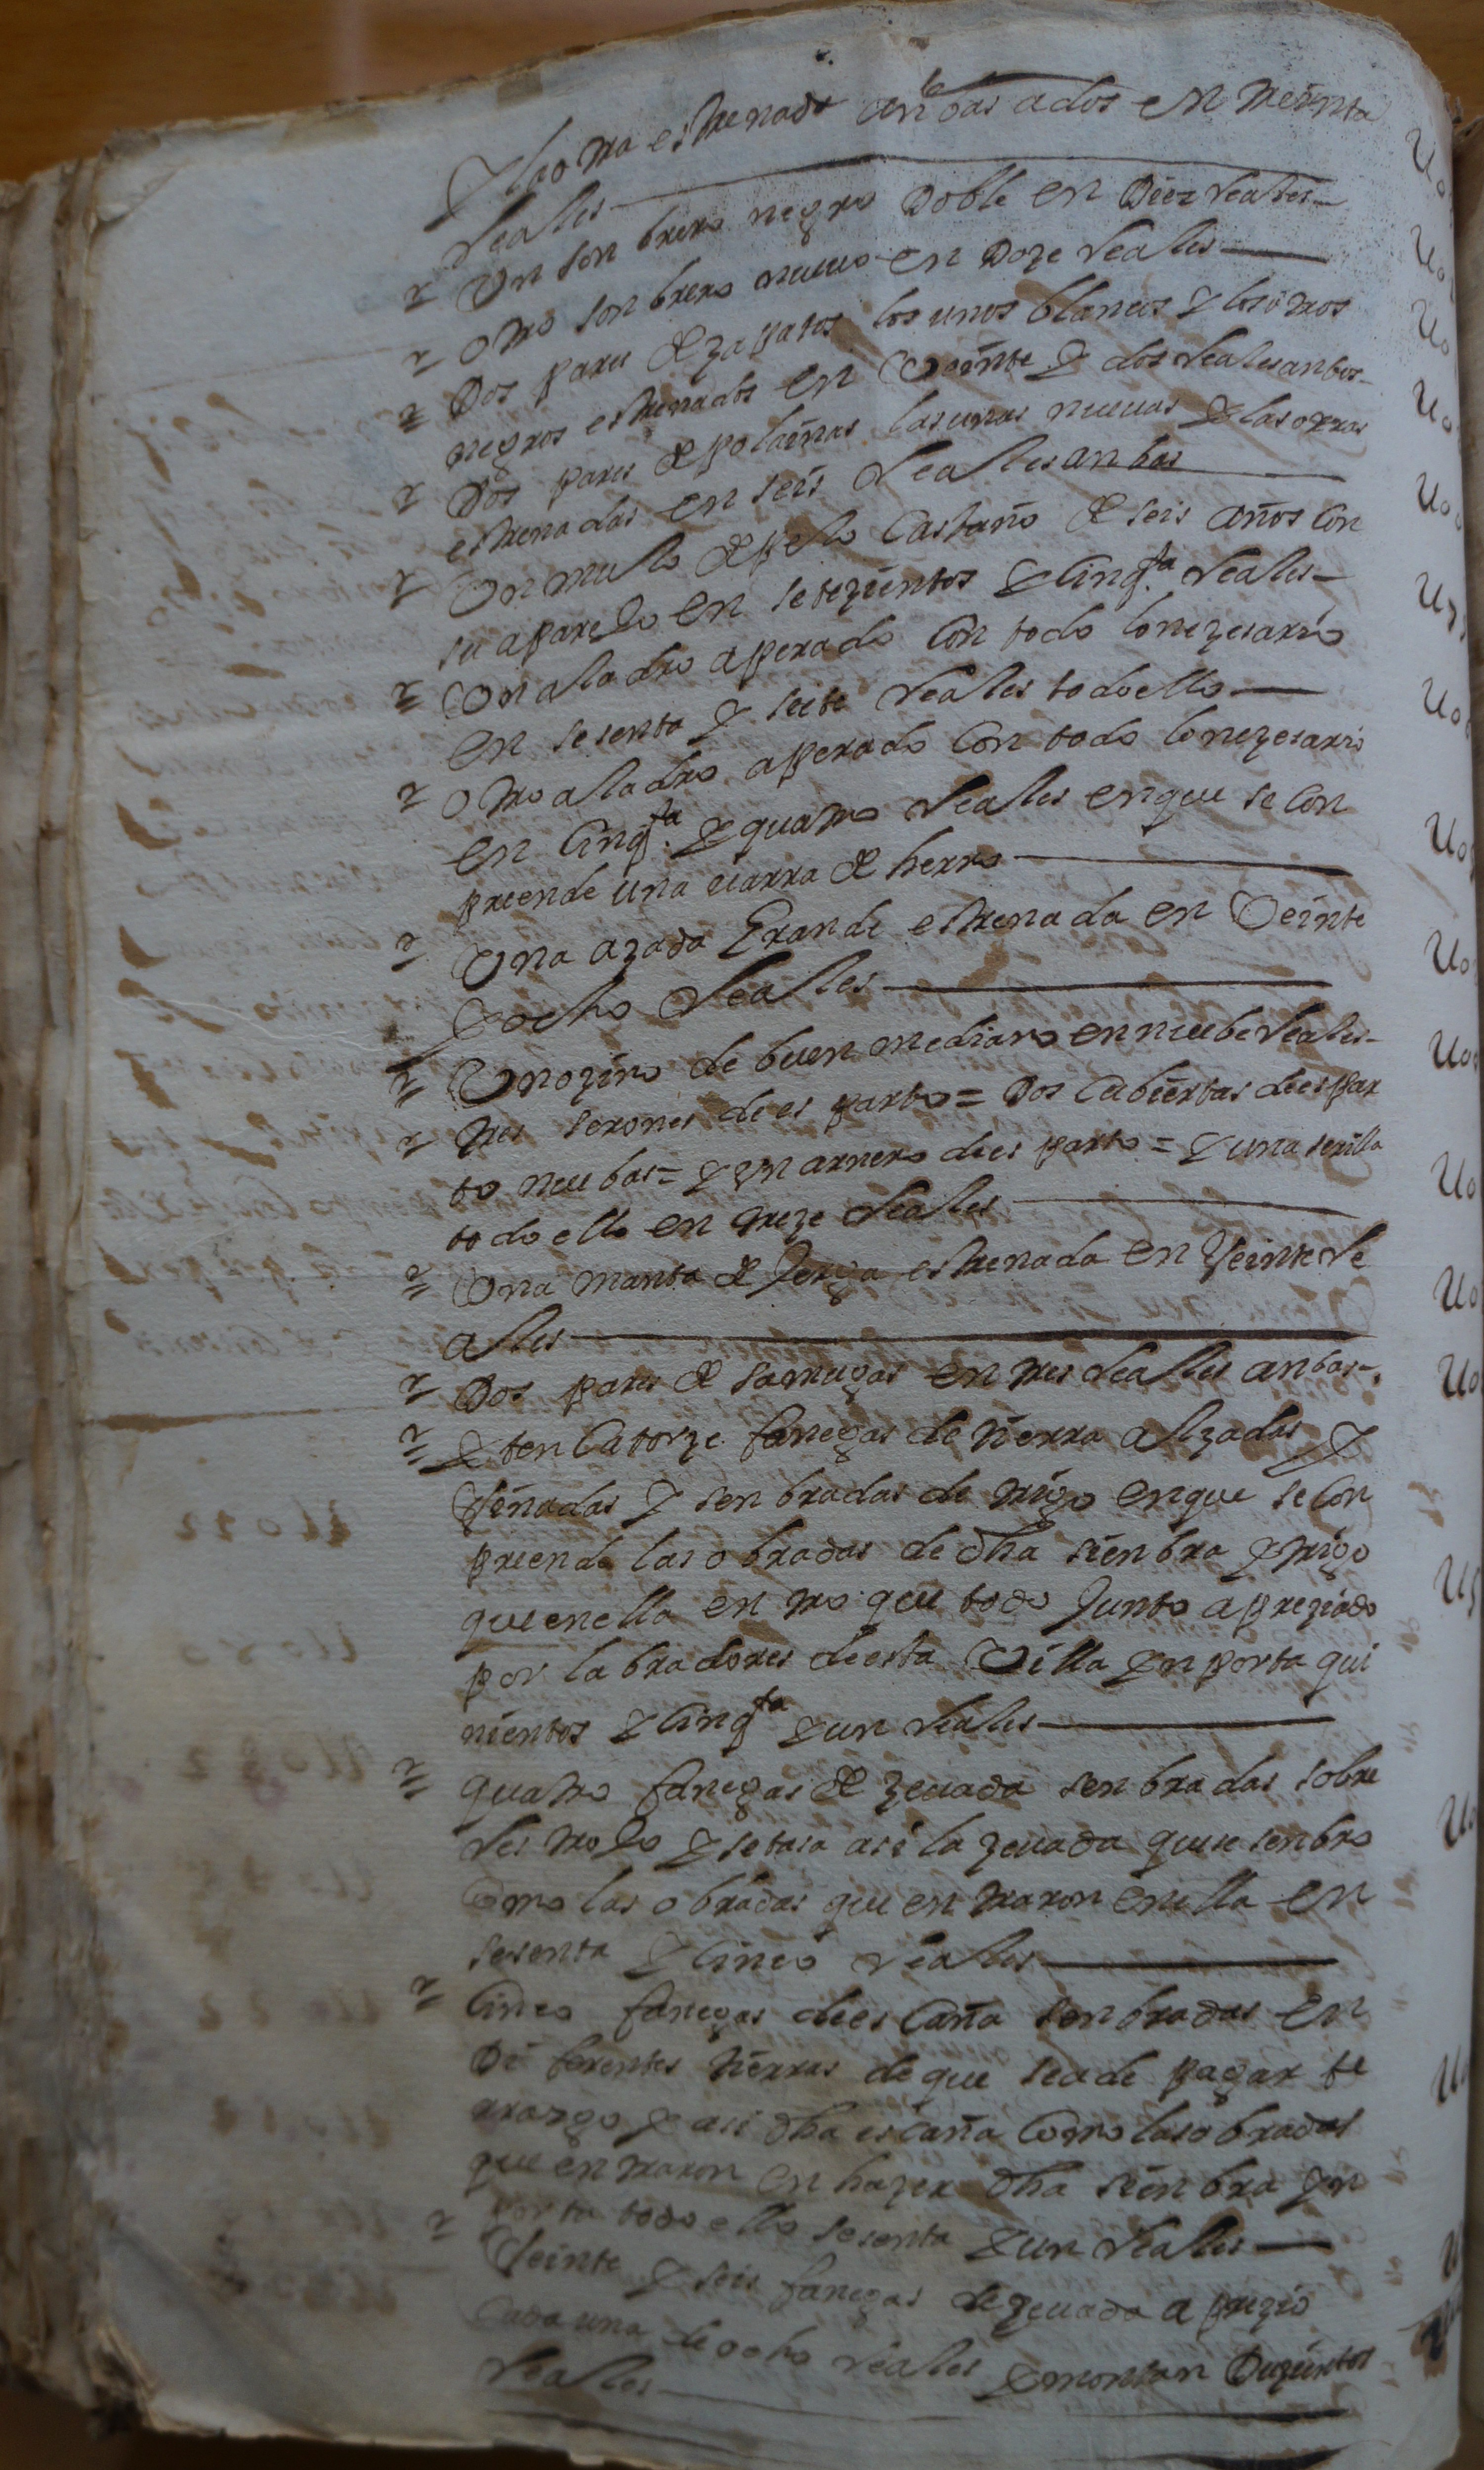 Y la otra estrenada anbas a dos en treinta
Reales
Un sonbrero negro Doble en Diez Reales
Otro sonbrero nuevo en Doze Reales
Dos pares de zapatos los unos blancos y los otros
negros estrenados en Veinte y dos Reales anbos
Dos pares de polainas las unas nuevas y las otras
estrenadas en seis Reales anbas
Un mulo de pelo Castaño de seis años Con
su aparejo en setezientos y Cinqta Reales
Un aladro aperado Con todo lo nezesario
en sesenta y siete Reales todo ello
Otro aladro aperado Con todo lo nezesario
en Cinqta y quatro Reales en que se Con
prende una varra de herro
Una azada Grande estrenada en Veinte
y ocho Reales
Un ozino de buen mediano en nuebe Reales
tres serones de esparto = Dos Cubiertas de espar
to nuebas = y un arnero de esparto = y una serilla
todo ello en treze Reales
Una manta de Jerga estrenada en Veinte Re
ales
Dos pares de samugas en tres Reales anbas
Yten Catorze fanegas de tierra alzadas y
Vinadas y senbradas de trigo en que se Con
prende las obradas de dha sienbra y trigo
que en ella entro que todo Junto apreziado
por labradores de esta Villa ynporta qui
nientos y Cinqta y un Reales
quatro fanegas de zevada senbradas sobre
Restrojo y se tasa asi la zevada que se senbro
Como las obradas que entraron en ella en
sesenta y Cinco Reales
Cinco fanegas de escaña senbradas en
Diferentes tierras de que se a de pagar te
rrazgo y asi dha escaña Como las obradas
que entraron en hazer dha sienbra yn
porta todo ello sesenta y un Reales
Veinte y seis fanegas de zevada a prezio
Cada una de ocho reales y montan Duzientos
Reales